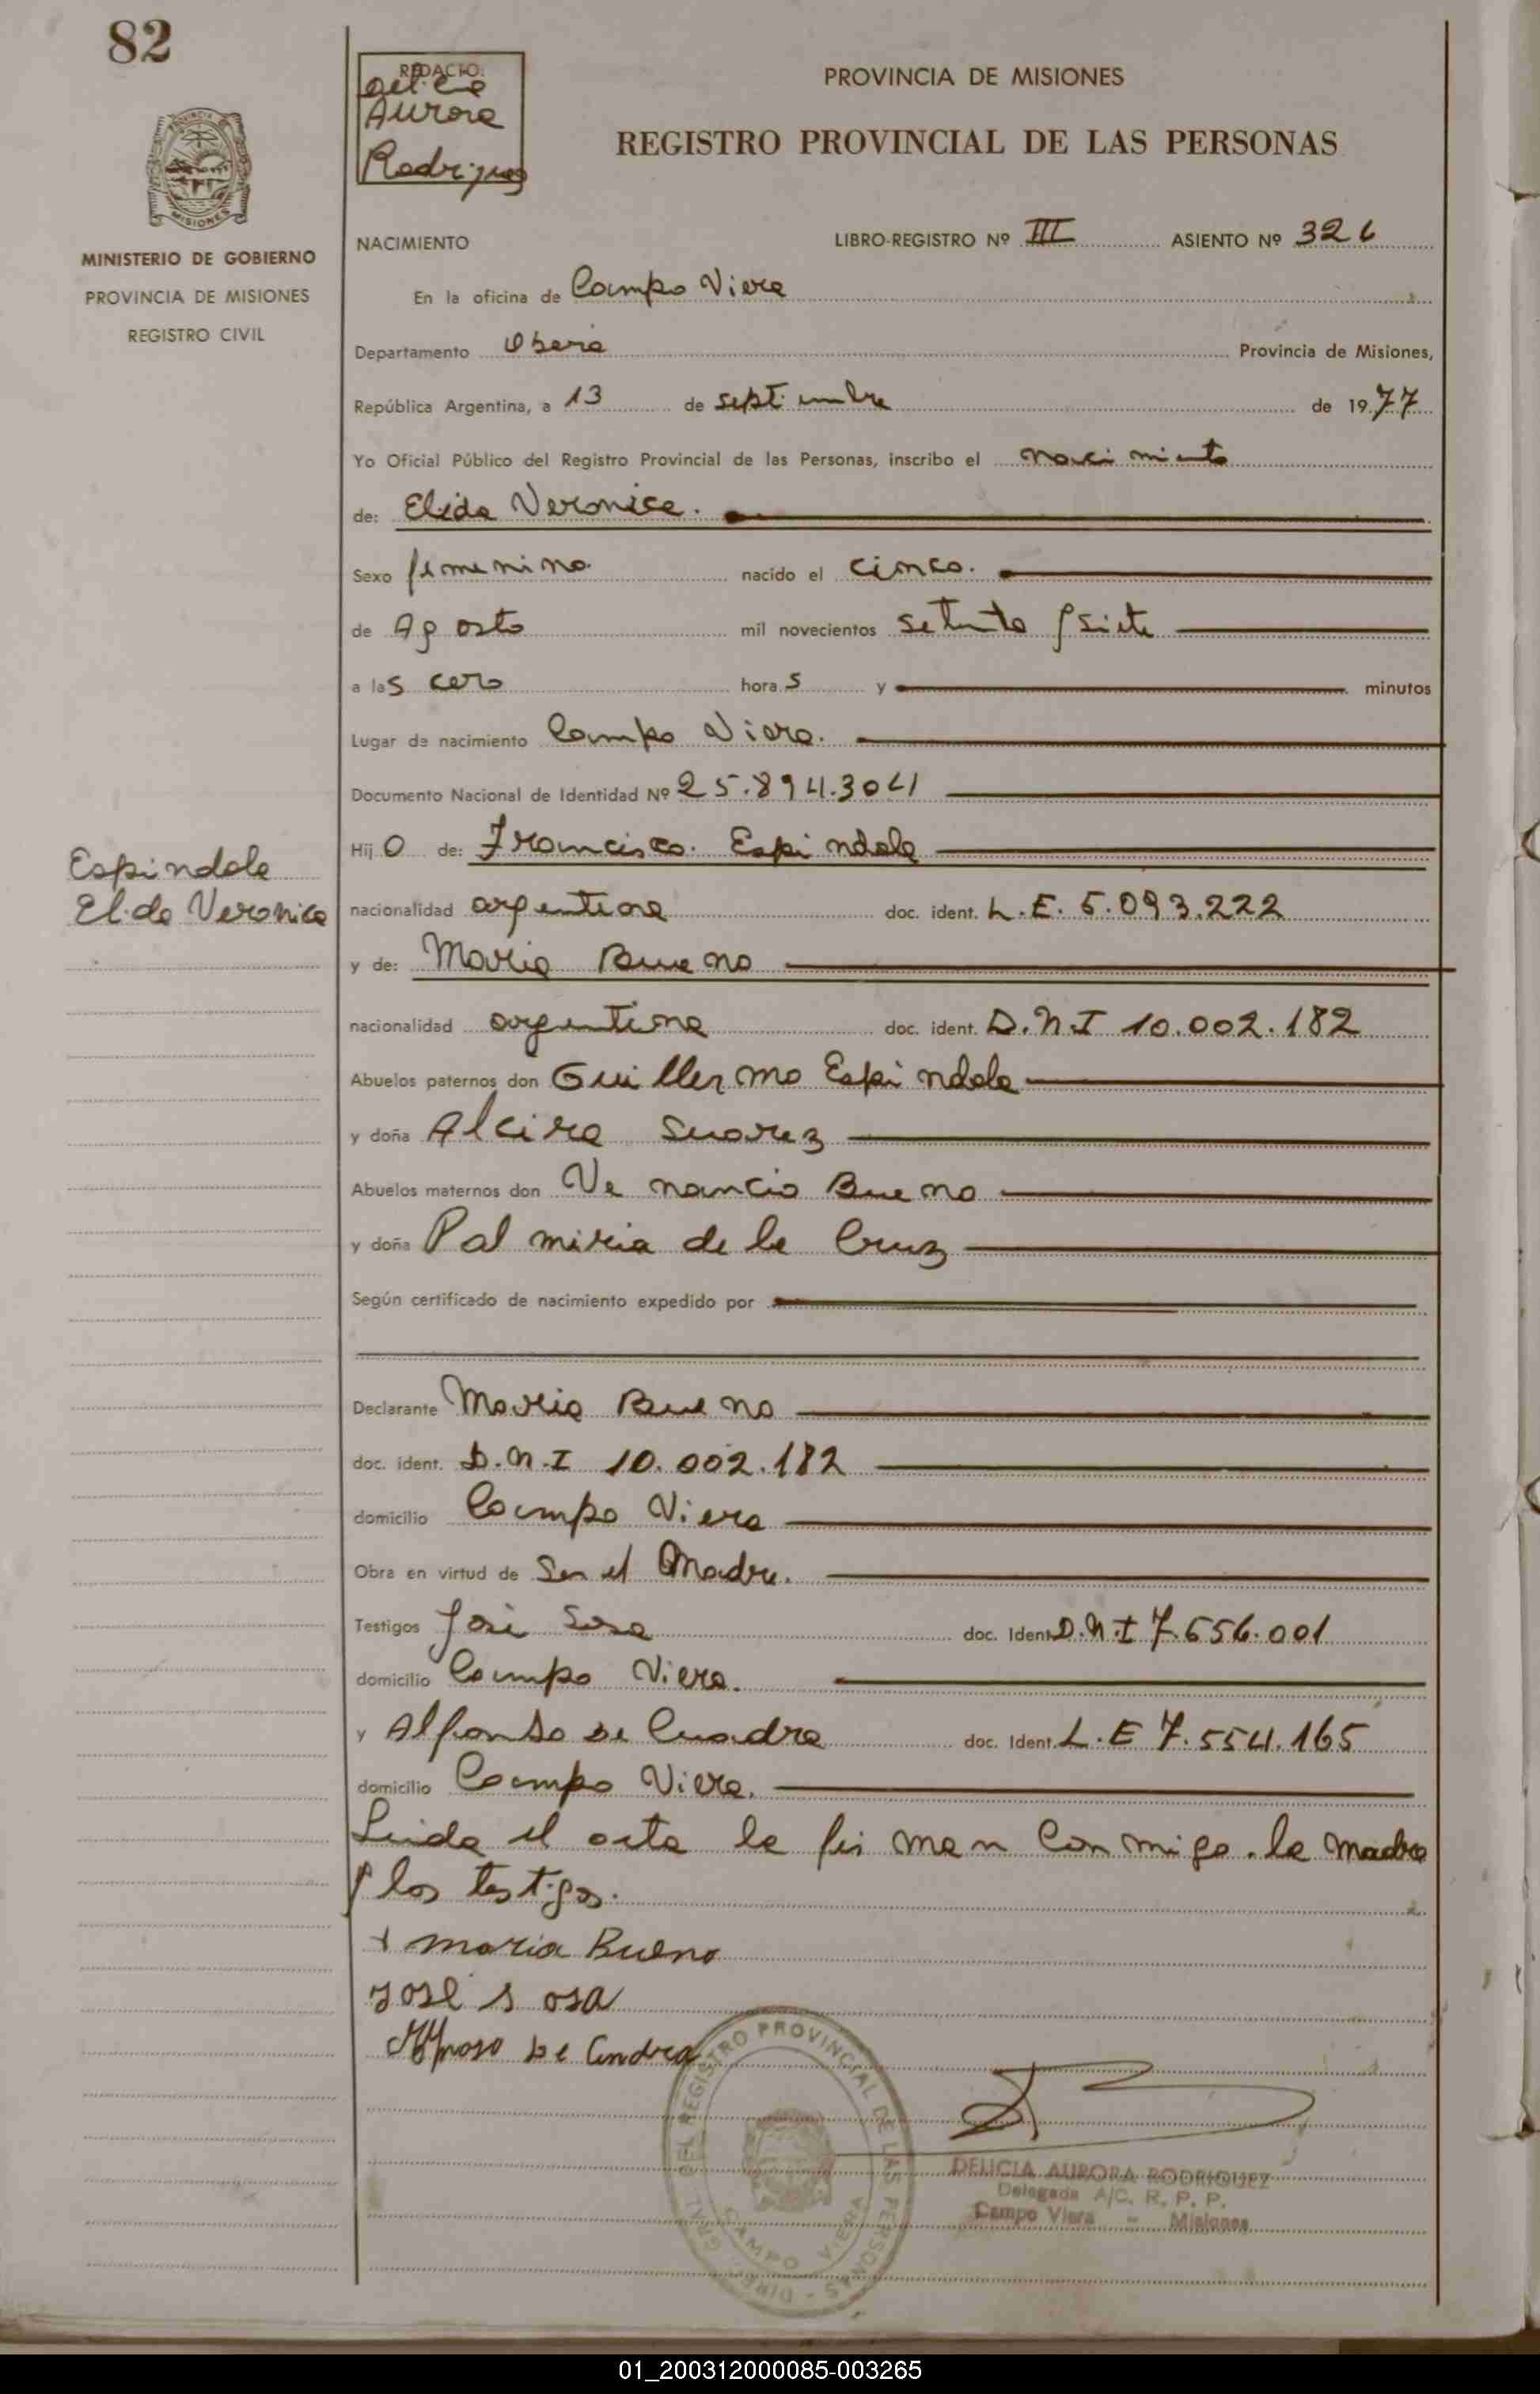 82
REDACTO:
Delicia
Aurora
Rodriguez
PROVINCIA DE MISIONES
REGISTRO PROVINCIAL DE LAS PERSONAS
MISIONES
MINISTERIO DE GOBIERNO
PROVINCIA DE MISIONES
REGISTRO CIVIL
NACIMIENTO LIBRO-REGISTRO Nº III ASIENTO Nº 326
En la oficina de Campo Viera
Departamento Obera Provincia de Misiones,
República Argentina, a 13 de septiembre de 1977
Yo Oficial Público del Registro Provincial de las Personas, inscribo el nacimiento
de: Elida Veronica.
Sexo femenino nacido el cinco.
de Agosto mil novecientos setenta y siete
a las cero horas y minutos
Lugar de nacimiento Campo Viera.
Documento Nacional de Identidad Nº 25.894.304
Hijo de: Francisco Espindola
Espindola
Elida Veronica
nacionalidad argentina doc. ident. L.E. 5.093.222
y de: Maria Bueno
nacionalidad argentina doc. ident. D.N.I 10.002.182
Abuelos paternos don Guillermo Espindola
y doña Alcira Suarez
Abuelos maternos don Venancio Bueno
y doña Palmiria de la Cruz
Según certificado de nacimiento expedido por
Declarante Maria Bueno
doc. ident. D.N.I 10.002.182
domicilio Campo Viera
Obra en virtud de Ser el Madre.
Testigos José Sosa doc. Ident. D.N.I 7.656.001
domicilio Campo Viera.
y Alfonso De Cuadra doc. Ident. L.E 7.554.165
domicilio Campo Viera.
Leida el acta la firman conmigo la madre
y los testigos.
+ maria Bueno
José Sosa
De Cuadra
DIREC. GRAL. DEL REGISTRO PROVINCIAL DE LAS PERSONAS
CAMPO VIERA
DELICIA AURORA RODRIGUEZ
Delegada A/C. R. P. P.
Campo Viera - Misiones
01_200312000085-003265